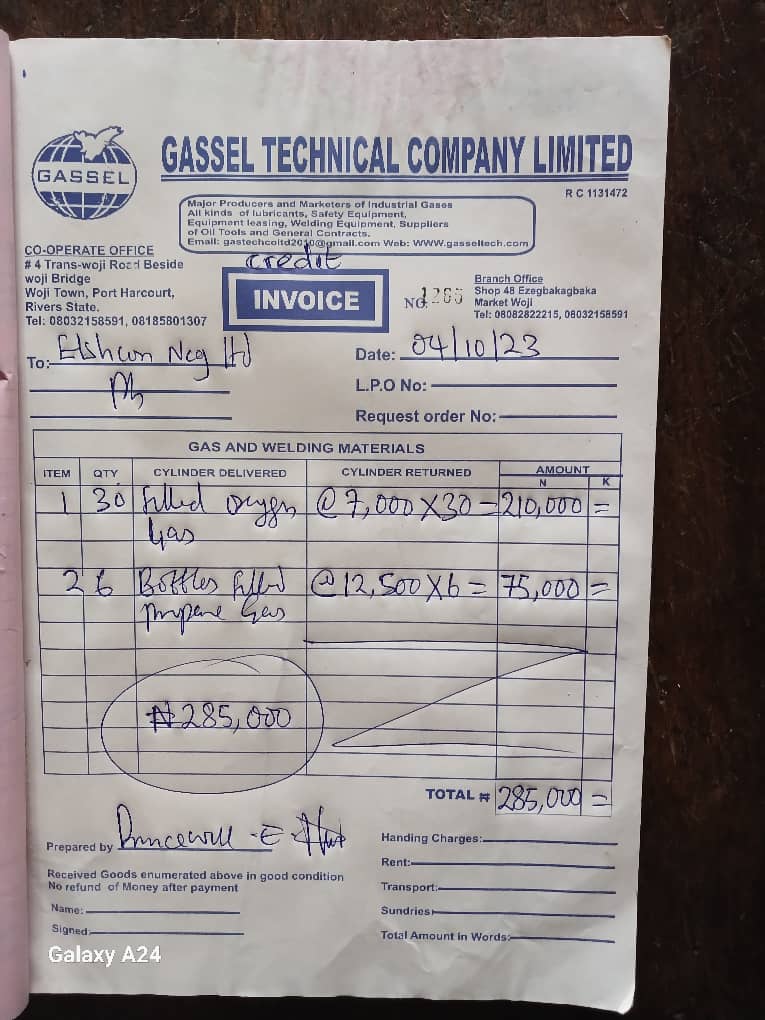 GASSEL
GASSEL TECHNICAL COMPANY LIMITED
R C 1131472
Major Producers and Marketers of Industrial Gases
All kinds of lubricants, Safety Equipment,
Equipment leasing, Welding Equipment, Suppliers
of Oil Tools and General Contracts.
Email: gastechcoltd2010@gmail.com Web: WWW.gasseltech.com
CO-OPERATE OFFICE
# 4 Trans-woji Road Beside
woji Bridge
Woji Town, Port Harcourt,
Rivers State.
Tel: 08032158591, 08185801307
credit
INVOICE
NO.
Branch Office
Shop 48 Ezegbakagbaka
Market Woji
Tel: 08082822215, 08032158591
To: Elshcon Neg ltd
Date: 04/10/23
L.P.O No:
Request order No:
GAS AND WELDING MATERIALS
ITEM QTY CYLINDER DELIVERED CYLINDER RETURNED AMOUNT
N K
1 30 filled oxygen @ 7,000 X 30 = 210,000 =
Gas
2 6 Bottles filled @ 12,500 X 6 = 75,000 =
propane Gas
₦285,000
TOTAL ₦ 285,000 =
Prepared by Princewill - E
Received Goods enumerated above in good condition
No refund of Money after payment
Name:
Signed:
Handing Charges:
Rent:
Transport:
Sundries:
Total Amount in Words:
Galaxy A24